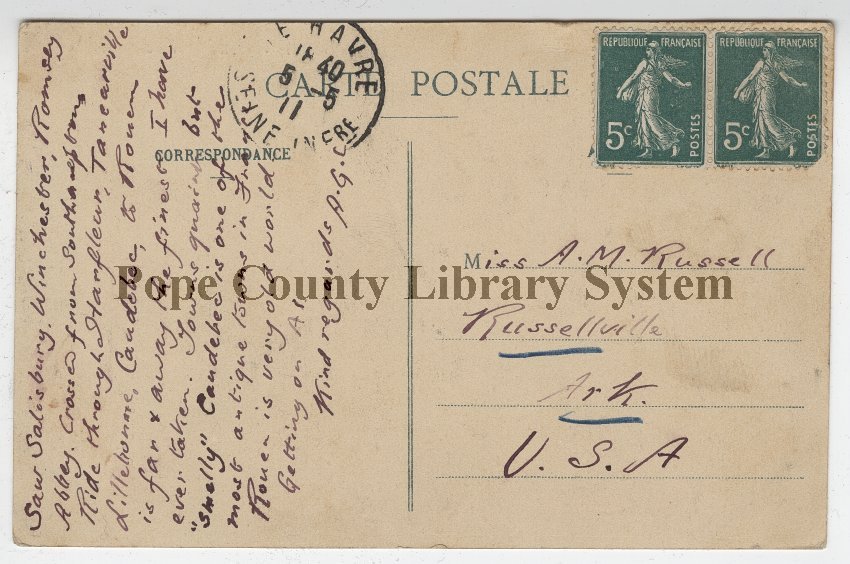 CARTE POSTALE
CORRESPONDANCE
LE HAVRE
18 40
5 5
11
SEINE INFRE
REPUBLIQUE FRANÇAISE
5c
POSTES
REPUBLIQUE FRANÇAISE
5c
POSTES
Saw Salisbury, Winchester, Romsey
Abbey. Crossed from Southampton
Ride through Harfleur, Tancarville
Lillebonne, Caudebec, to Rouen
is far & away the finest I have
ever taken. Towns quaint but
"smelly" Caudebec is one of the
most antique towns in
Rouen is very old world
Getting on A1
Kind regards A.G.C.
Miss A.M. Russell
Russellville
Ark.
U.S.A
Pope County Library System